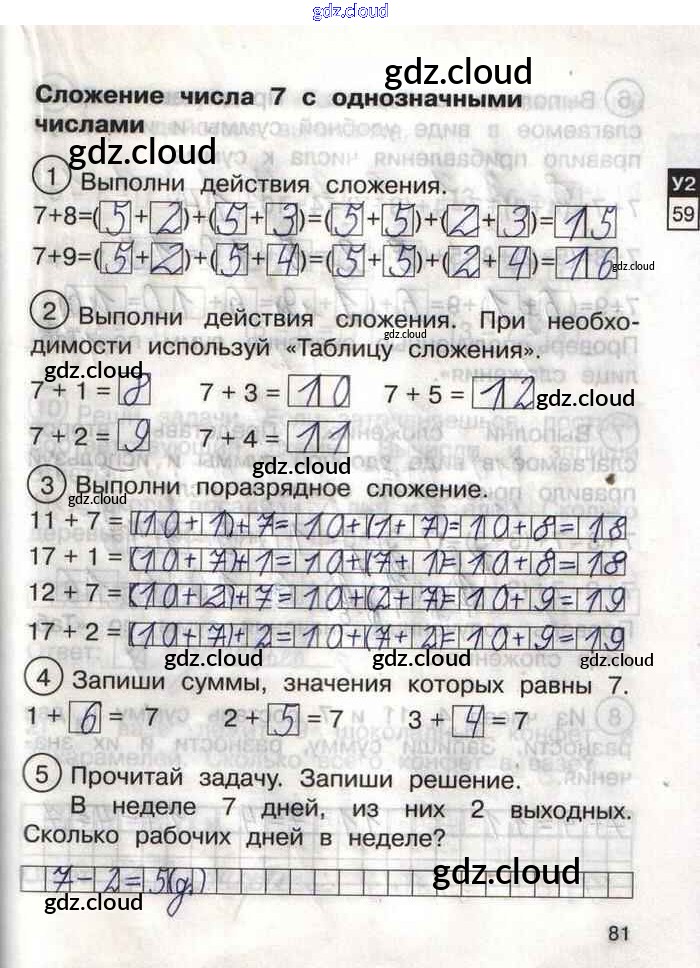 gdz.cloud
gdz.cloud
Сложение числа 7 с однозначными
числами
gdz.cloud
1 Выполни действия сложения.
У2
59
7+8=(5+2)+(5+3)=(5+5)+(2+3)=15
7+9=(5+2)+(5+4)=(5+5)+(2+4)=16
gdz.cloud
2 Выполни действия сложения. При необхо-
gdz.cloud
димости используй «Таблицу сложения».
7 + 1 = 8 7 + 3 = 10 7 + 5 = 12
gdz.cloud gdz.cloud
7 + 2 = 9 7 + 4 = 11
gdz.cloud
3 Выполни поразрядное сложение.
gdz.cloud
11 + 7 = (10+1)+7=10+(1+7)=10+8=18
17 + 1 = (10+7)+1=10+(7+1)=10+8=18
12 + 7 = (10+2)+7=10+(2+7)=10+9=19
17 + 2 = (10+7)+2=10+(7+2)=10+9=19
gdz.cloud gdz.cloud gdz.cloud
4 Запиши суммы, значения которых равны 7.
1 + 6 = 7 2 + 5 = 7 3 + 4 = 7
5 Прочитай задачу. Запиши решение.
В неделе 7 дней, из них 2 выходных.
Сколько рабочих дней в неделе?
7-2=5(д.)
gdz.cloud gdz.cloud
81
gdz.cloud